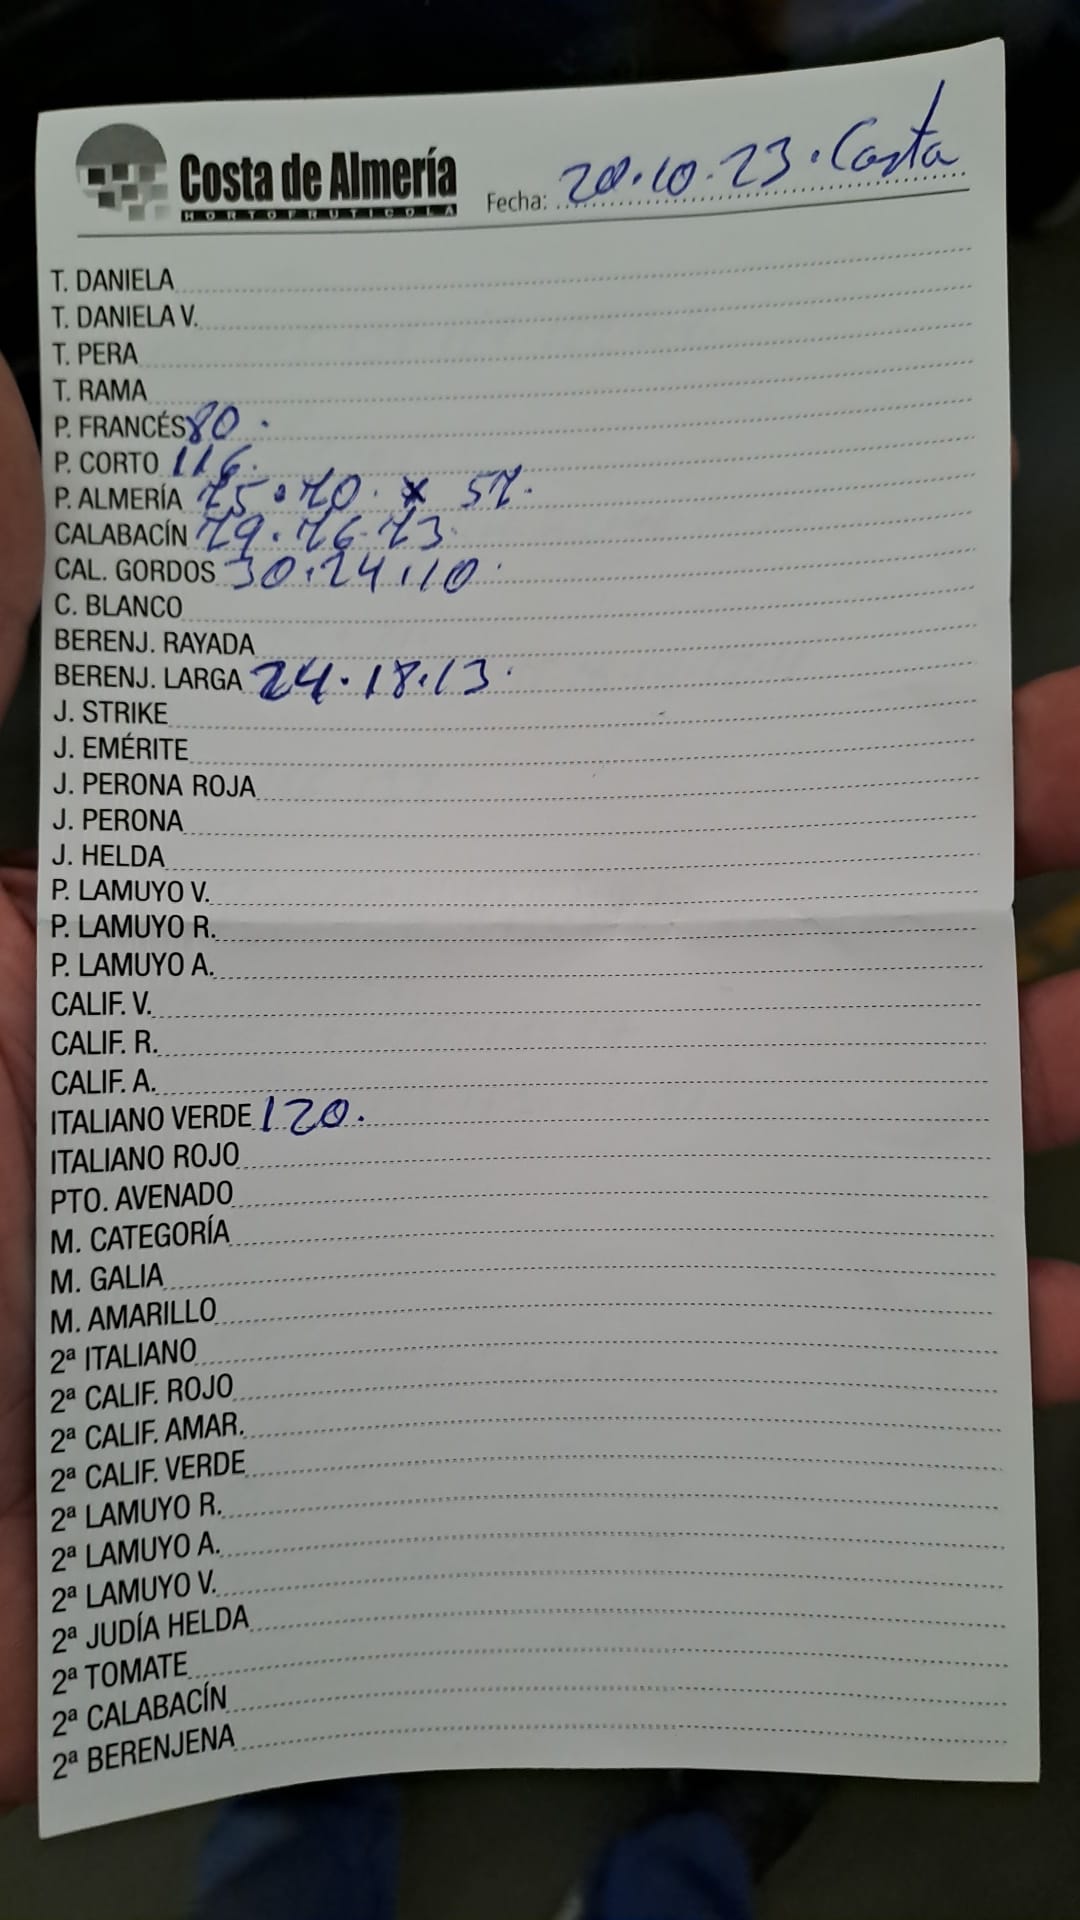 Costa de Almería
HORTOFRUTÍCOLA
Fecha: 20.10.23. Costa
T. DANIELA
T. DANIELA V.
T. PERA
T. RAMA
P. FRANCÉS 80.
P. CORTO 116.
P. ALMERÍA 75.70. x 57.
CALABACÍN 79.76.73.
CAL. GORDOS 30.24.10.
C. BLANCO
BERENJ. RAYADA
BERENJ. LARGA 24.18.13.
J. STRIKE
J. EMÉRITE
J. PERONA ROJA
J. PERONA
J. HELDA
P. LAMUYO V.
P. LAMUYO R.
P. LAMUYO A.
CALIF. V.
CALIF. R.
CALIF. A.
ITALIANO VERDE 120.
ITALIANO ROJO
PTO. AVENADO
M. CATEGORÍA
M. GALIA
M. AMARILLO
2ª ITALIANO
2ª CALIF. ROJO
2ª CALIF. AMAR.
2ª CALIF. VERDE
2ª LAMUYO R.
2ª LAMUYO A.
2ª LAMUYO V.
2ª JUDÍA HELDA
2ª TOMATE
2ª CALABACÍN
2ª BERENJENA